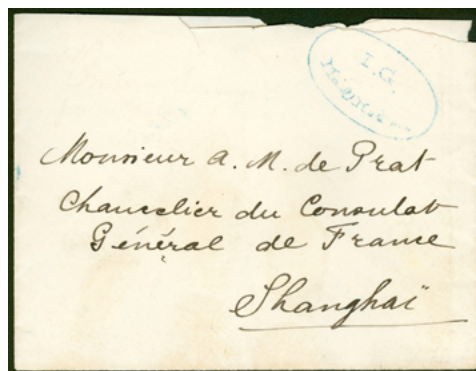 I.G.
Monsieur A. M. de Prat
Chancelier du Consulat
Général de France
Shanghaï